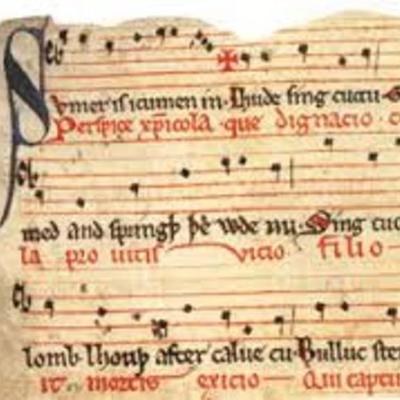 Svmer is icumen in. Lhude sing cuccu. G
Perspice xp̄icola que dignacio c
med and springþ þe wde nu. Sing cuc
la pro uitis vicio filio
lomb. lhouþ after calue cu. Bulluc ster
it mortis exicio Qui captiu